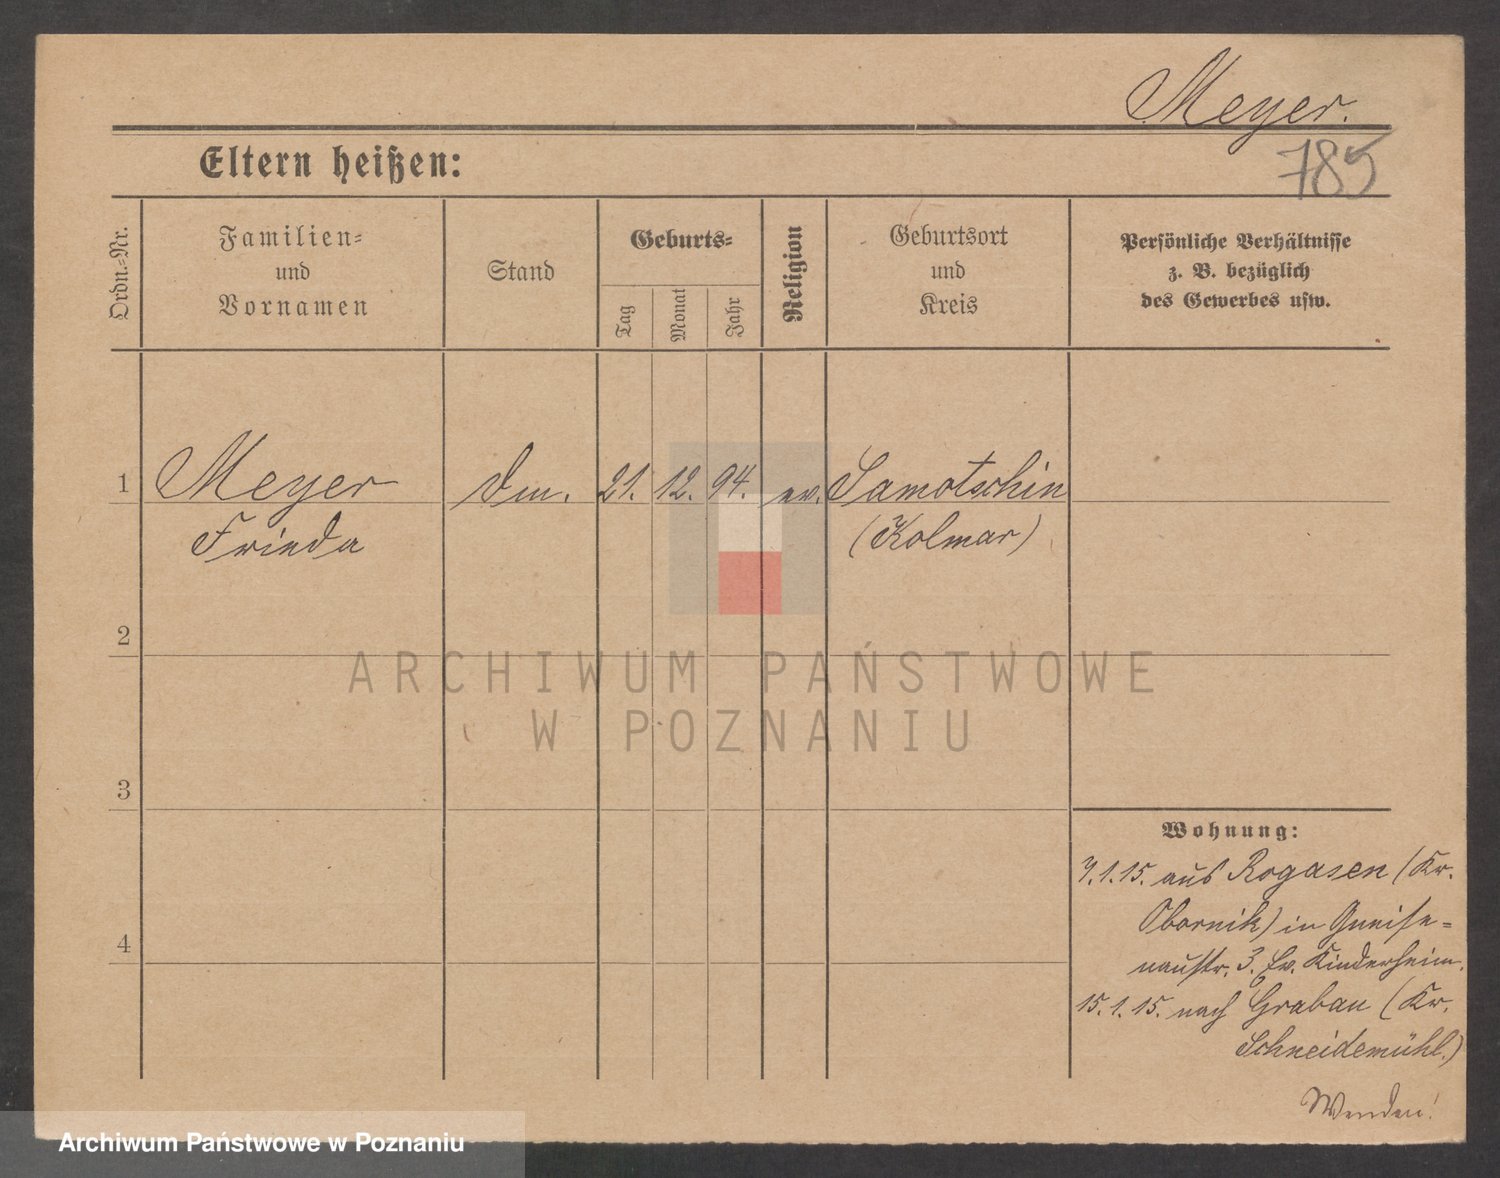 Meyer.
785
Eltern heißen:
Ordn.-Nr.
Familien-
und
Vornamen
Stand
Geburts-
Tag
Monat
Jahr
Religion
Geburtsort
und
Kreis
Persönliche Verhältnisse
z. B. bezüglich
des Gewerbes usw.
1 Meyer 21. 12. 94. ev. Samotschin
Frieda (Kolmar)
2
3
4
Wohnung:
7.1.15. aus Rogasen (Kr.
Obornik) in Gneise-
naustr. 3. Ev. Kinderheim.
15.1.15. nach Grabau (Kr.
Schneidemühl.)
Wenden!
ARCHIWUM PAŃSTWOWE
W POZNANIU
Archiwum Państwowe w Poznaniu